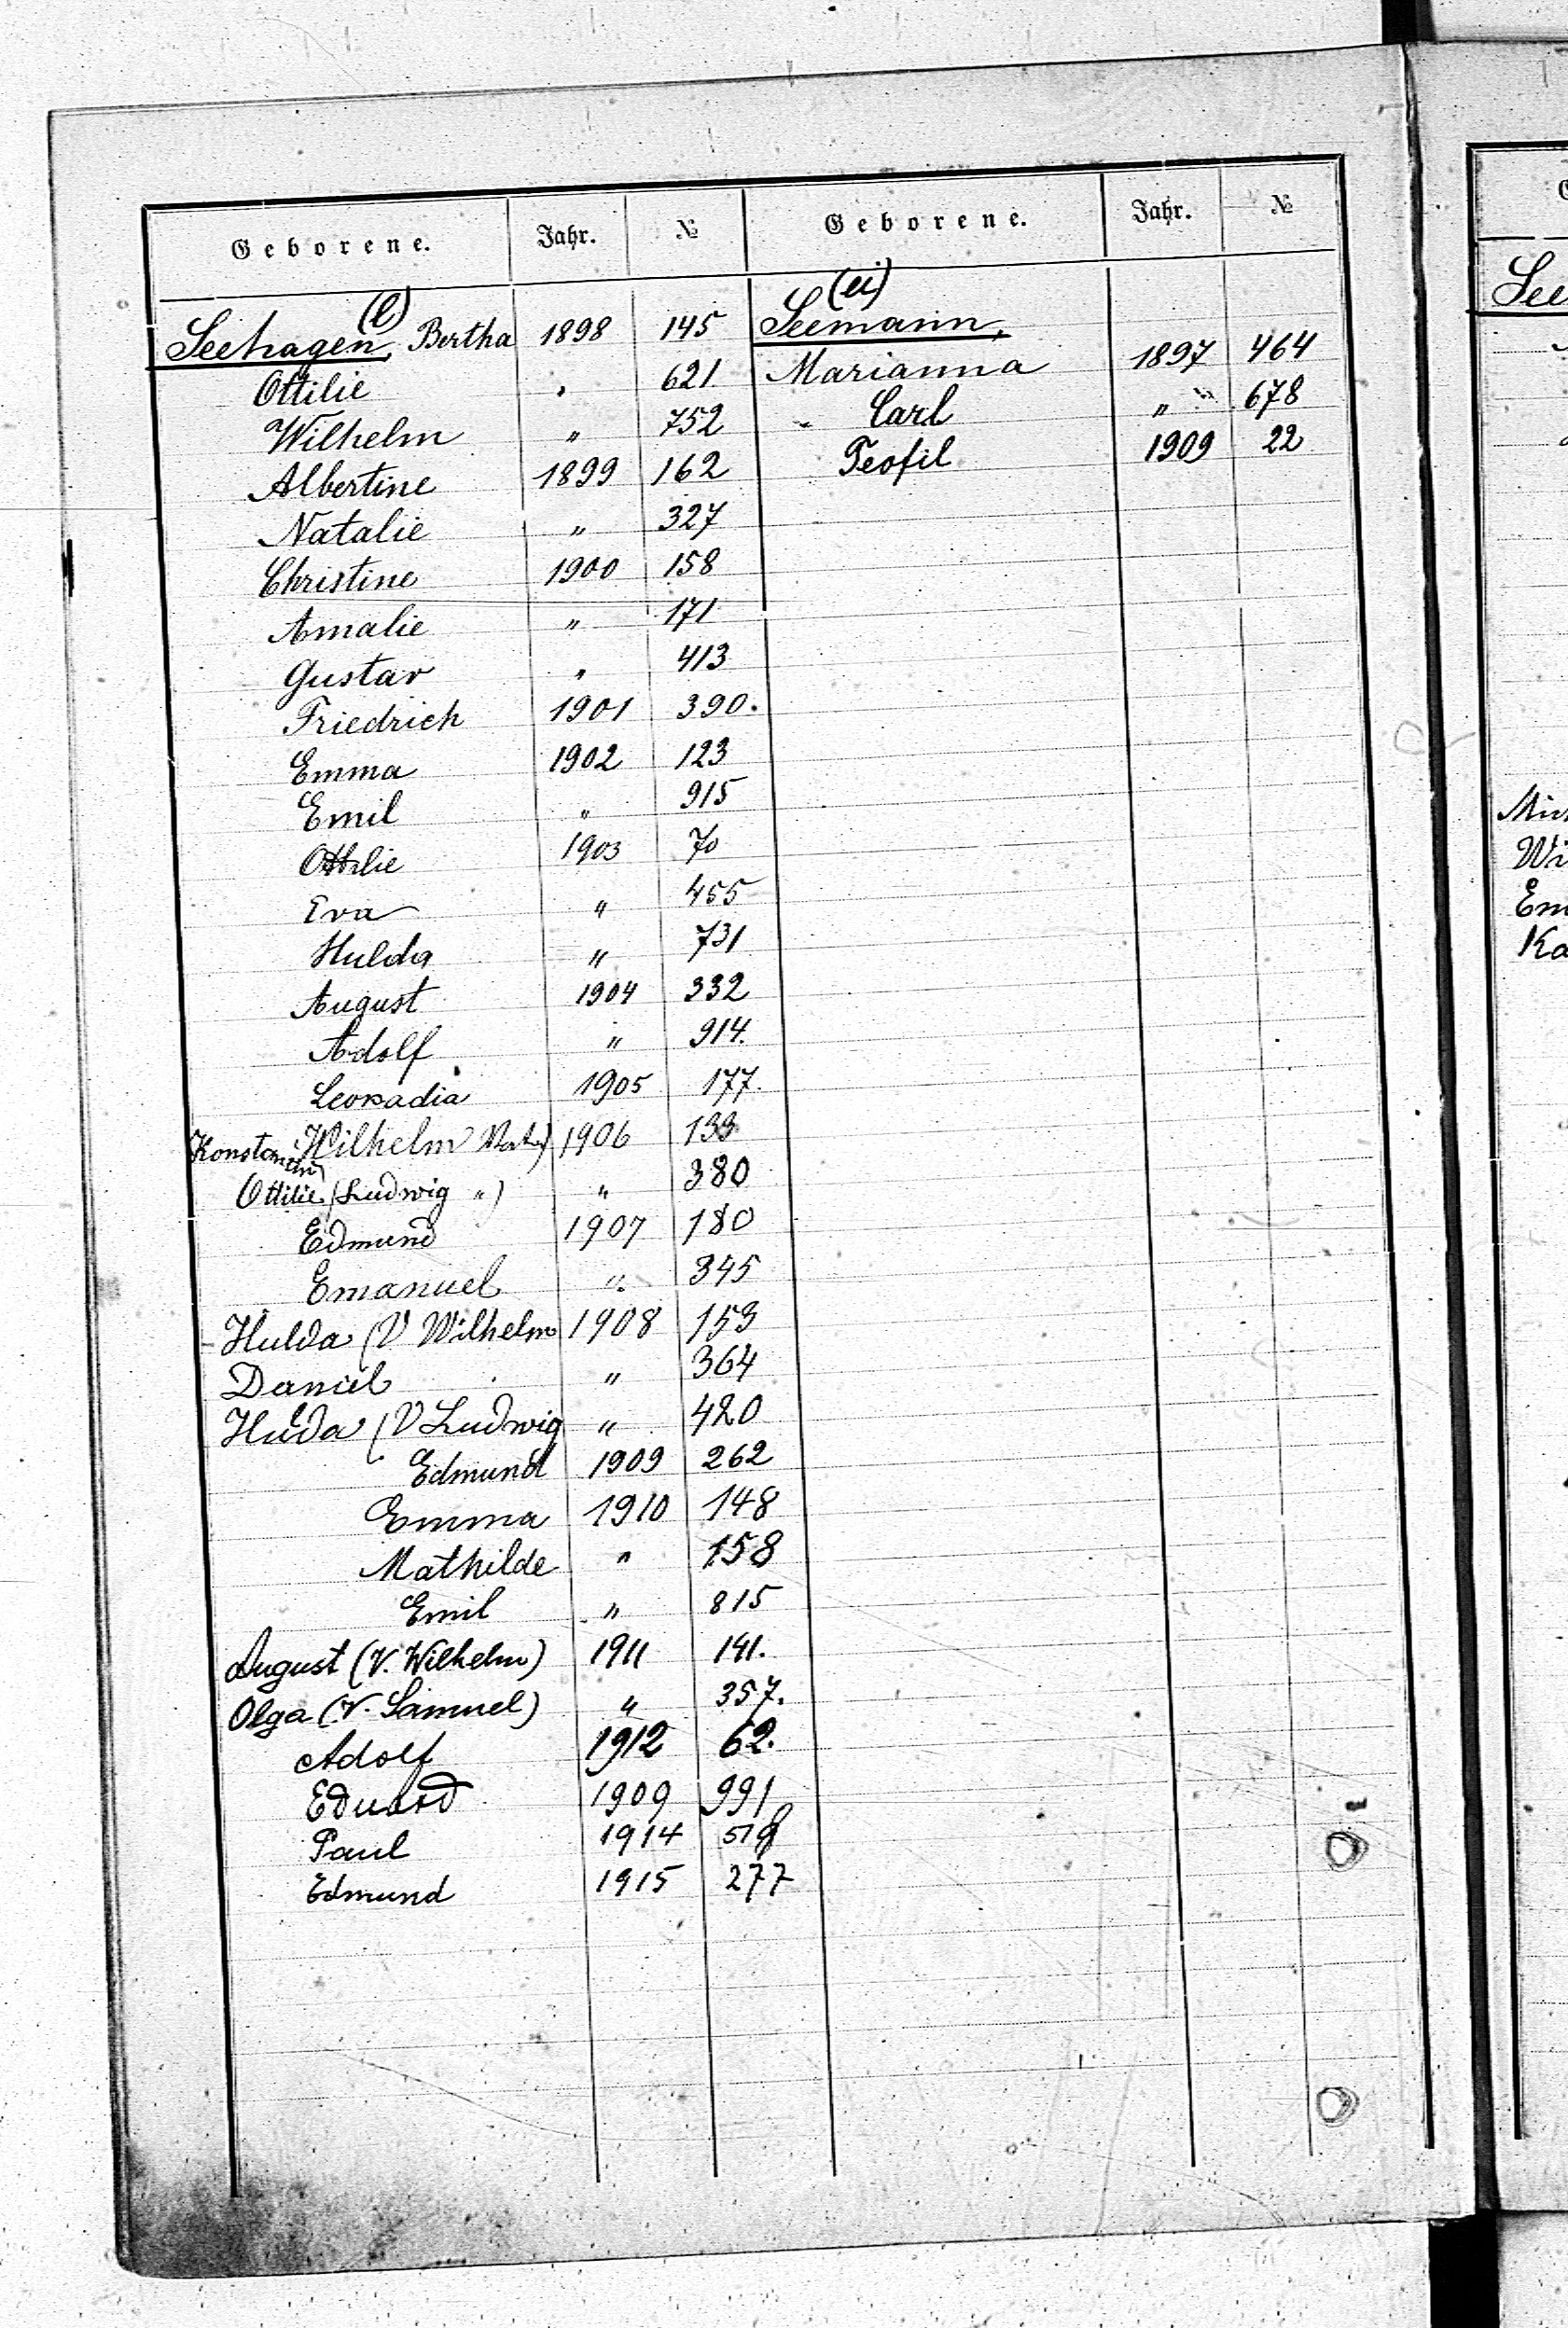 Geborene. Jahr. №
(l)
Seehagen, Bertha 1898 145
Ottilie " 621
Wilhelm " 752
Albertine 1899 162
Natalie " 327
Christine 1900 158
Amalie " 171
Gustav " 413
Friedrich 1901 390.
Emma 1902 123
Emil " 915
Ottilie 1903 70
Eva " 455
Hulda " 731
August 1904 332
Adolf " 914.
Leokadia 1905 177.
Konstantin (Wilhelm Vater) 1906 133
Ottilie (Ludwig ") " 380
Edmund 1907 180
Emanuel " 345
- Hulda (V Wilhelm 1908 153
Daniel " 364
Hulda (V Ludwig " 420
Edmund 1909 262
Emma 1910 148
Mathilde " 158
Emil " 815
August (V. Wilhelm) 1911 141.
Olga (V. Samuel) " 357.
Adolf 1912 62.
Eduard 1909 991
Paul 1914
Edmund 1915 277
Geborene. Jahr. №
(ei)
Seemann,
Marianna 1897 464
Carl " 678
Teofil 1909 22
G
See
Wi
Em
Ka